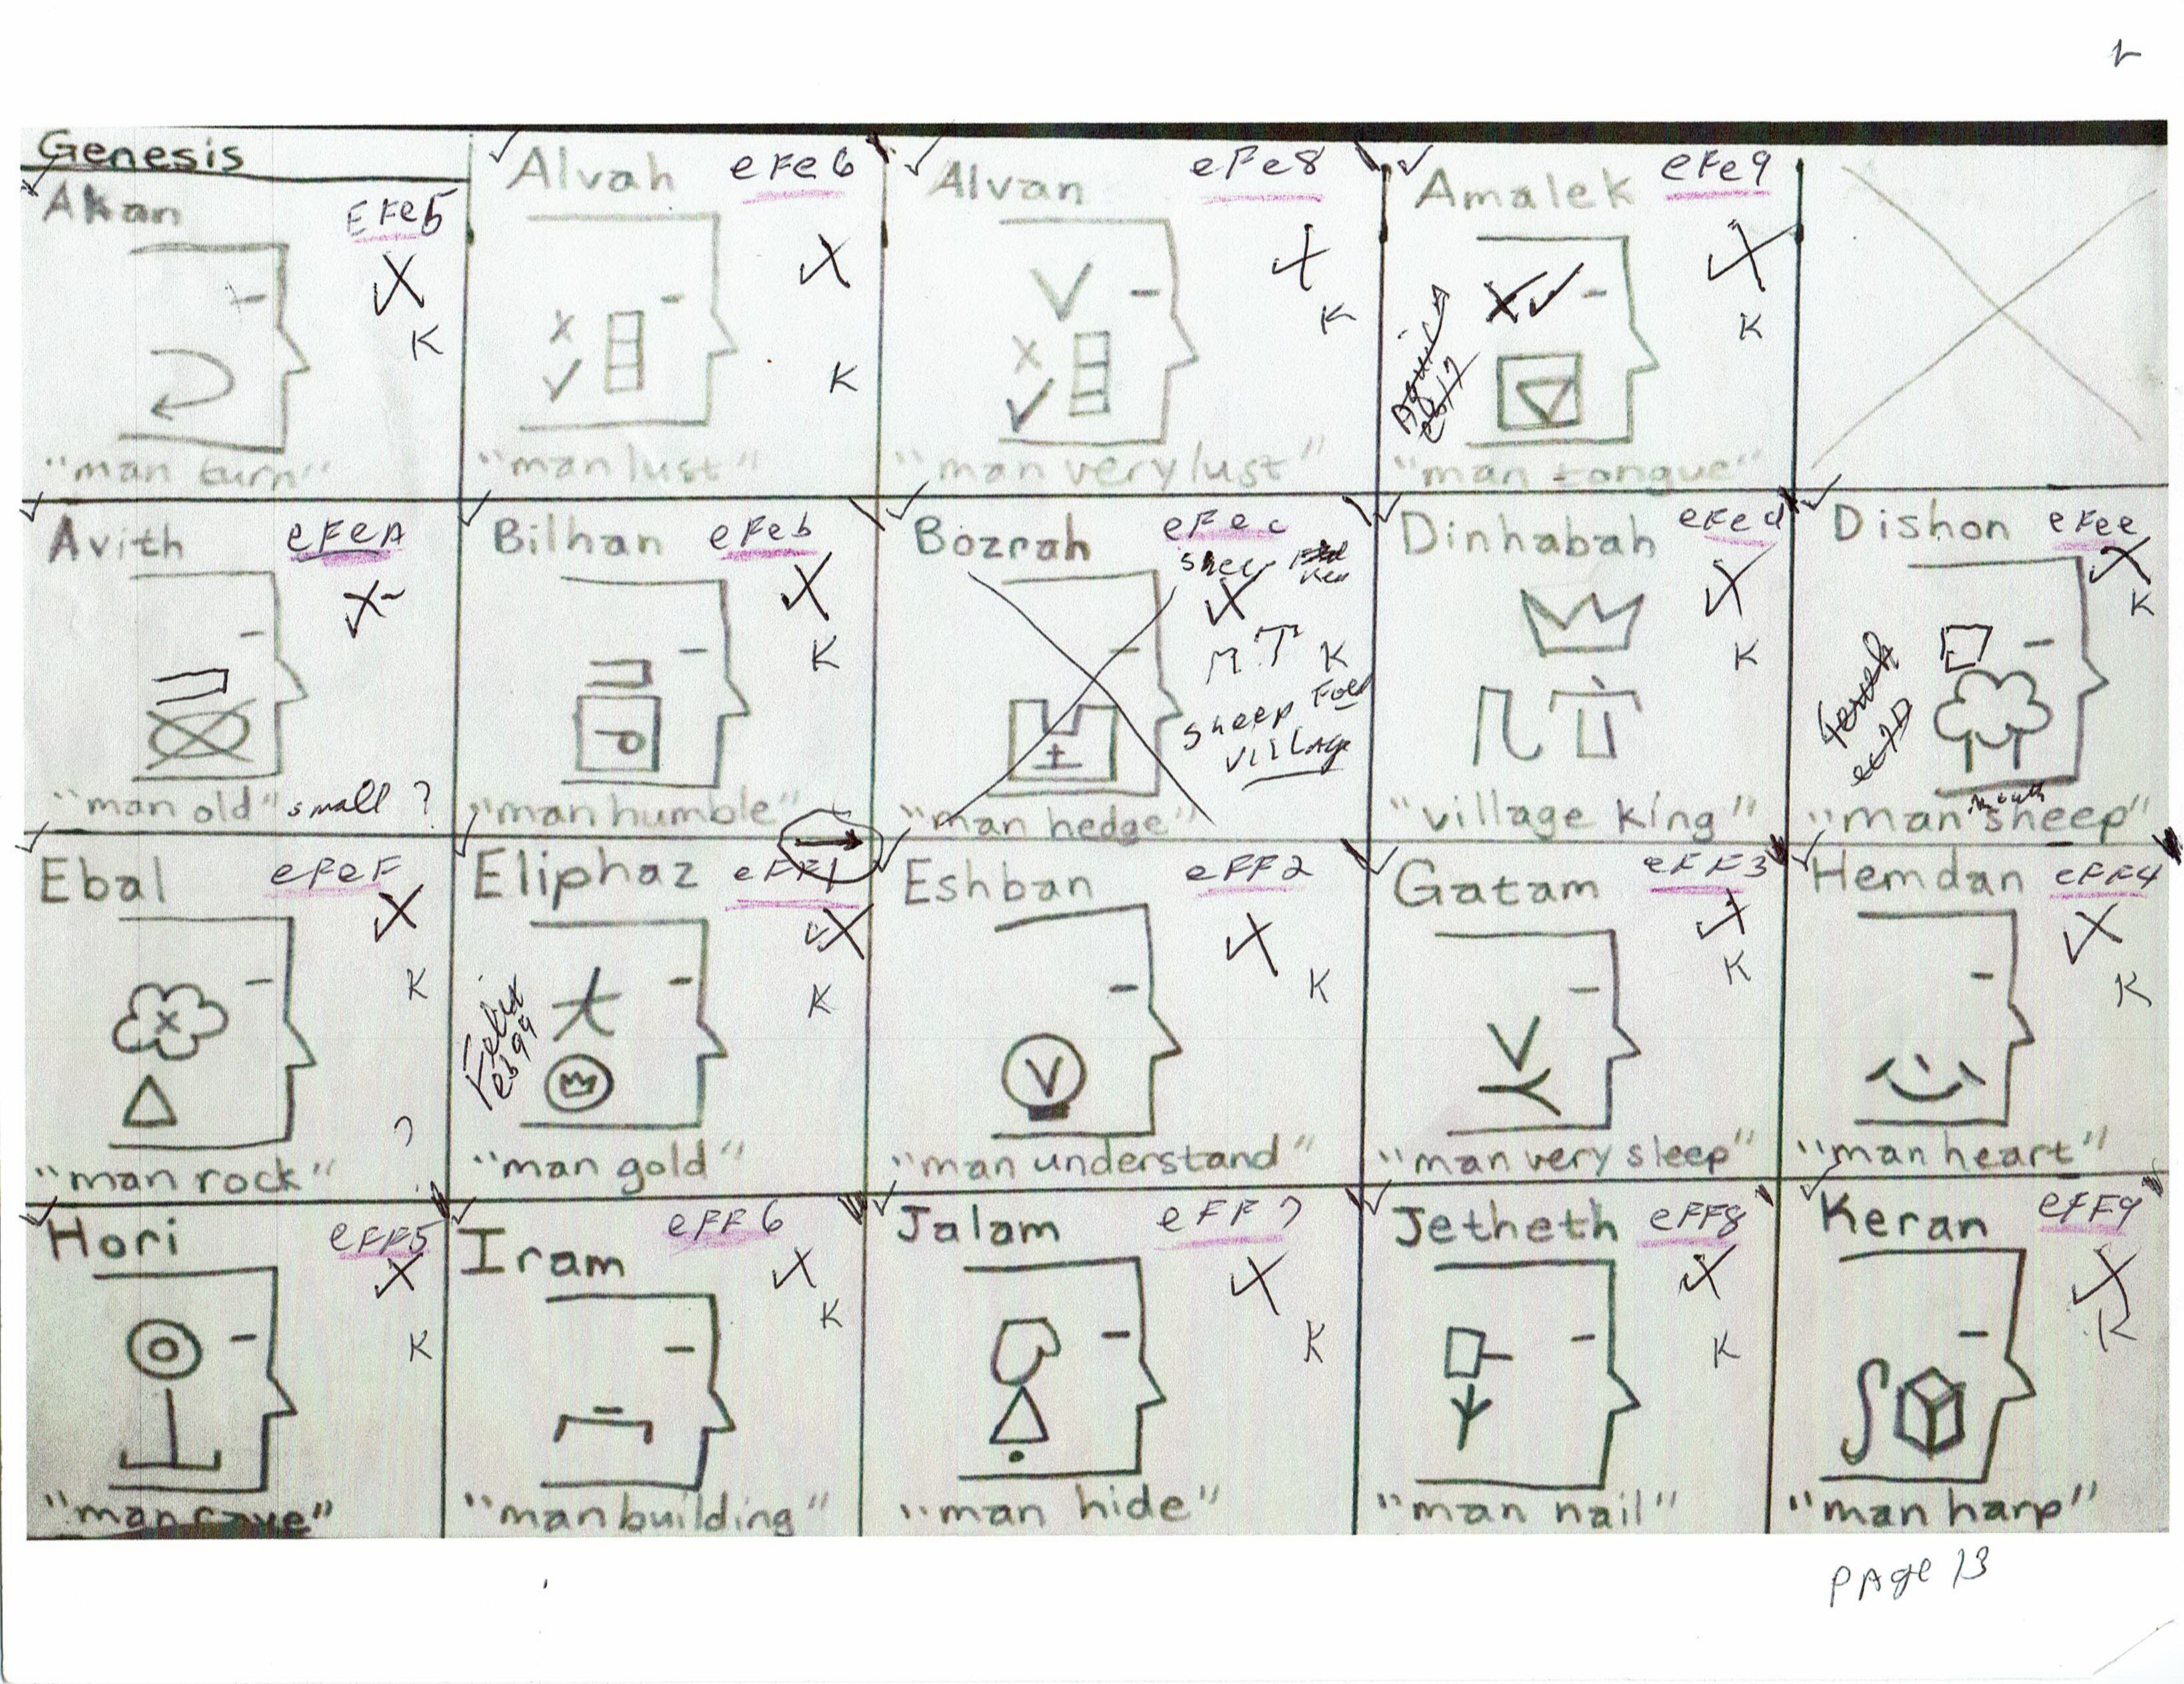 Genesis
Akan
EFe5
K
"man turn"
Alvah eFe6
K
"man lust"
Alvan eFe8
K
"man very lust"
Amalek eFe9
K
"man tongue"
Avith eFeA
"man old" small ?
Bilhan eFeb
K
"man humble"
Bozrah eFec
K
sheep
village
"man hedge"
Dinhabah eFed
K
"village king"
Dishon eFee
K
mouth
"man sheep"
Ebal eFeF
K
?
"man rock"
Eliphaz eFF1
K
Felix
eb99
"man gold"
Eshban eFF2
K
"man understand"
Gatam eFF3
K
"man very sleep"
Hemdan eFF4
K
"man heart"
Hori eFF5
K
"man cave"
Iram eFF6
K
"man building"
Jalam eFF7
K
"man hide"
Jetheth eFF8
K
"man nail"
Keran eFF9
K
"man harp"
PAge 13